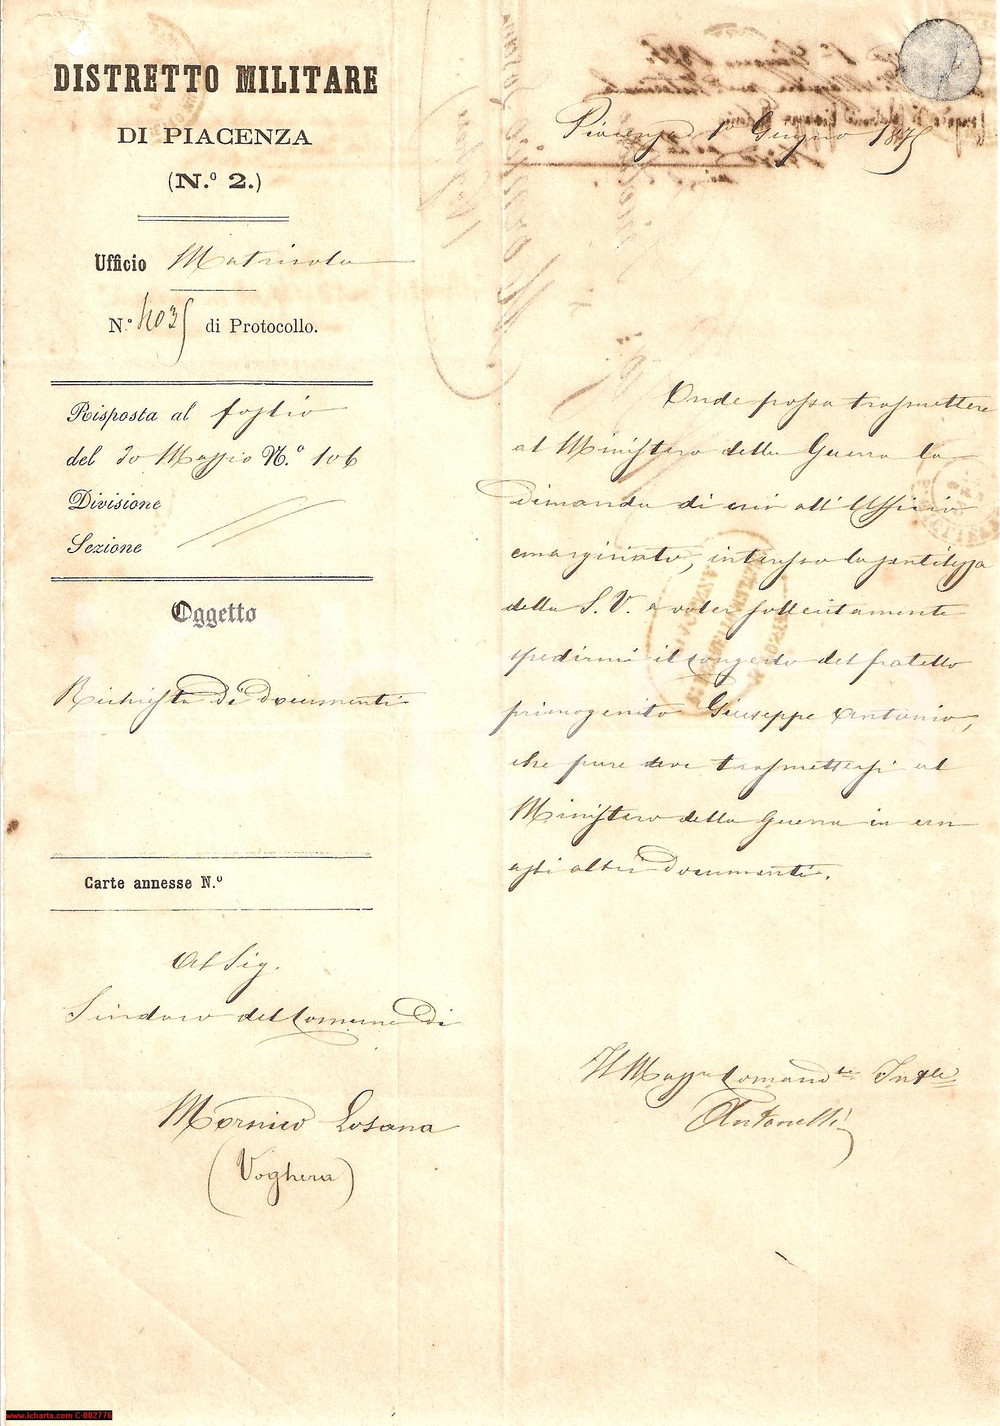 DISTRETTO MILITARE
DI PIACENZA
(N.º 2.)
Ufficio Matricola
N.º 4035 di Protocollo.
Risposta al foglio
del 30 Maggio N.º 106
Divisione
Sezione
Oggetto
Richiesta di documenti
Carte annesse N.º
Al Sig.
Sindaco del Comune di
Mornico Losana
(Voghera)
Piacenza 1º Giugno 1875
Onde possa trasmettere
al Ministero della Guerra la
dimanda di cui all'Ufficio
emarginato, interesso la gentilezza
della S. V. a voler sollecitamente
spedirmi il congedo del fratello
primogenito Giuseppe Antonio,
che pure deve trasmettersi al
Ministero della Guerra in un
agli altri documenti.
Il Magg.re Comand.te
Antonelli
www.icharta.com C-002778